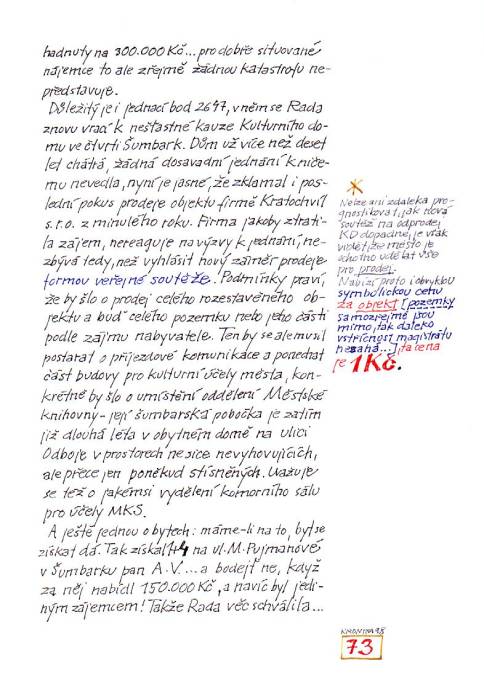 hadnuty na 300.000 Kč... pro dobře situované
nájemce to ale zřejmě žádnou katastrofu ne-
představuje.
Důležitý je i jednací bod 2647, v něm se Rada
znovu vrací k nešťastné kauze Kulturního do-
mu ve čtvrti Šumbark. Dům už více než deset
let chátrá, žádná dosavadní jednání k niče-
mu nevedla, nyní je jasné, že zklamal i pos-
lední pokus prodeje objektu firmě Kratochvíl
s.r.o. z minulého roku. Firma jakoby ztrati-
la zájem, nereaguje na výzvy k jednání, ne-
zbývá tedy, než vyhlásit nový záměr prodeje
formou veřejné soutěže. Podmínky praví,
že by šlo o prodej celého rozestavěného ob-
jektu a buď celého pozemku nebo jeho části
podle zájmu nabyvatele. Ten by se ale musil
postarat o příjezdové komunikace a ponechat
část budovy pro kulturní účely města, kon-
krétně by šlo o umístění oddělení Městské
knihovny - její šumbarská pobočka je zatím
již dlouhá léta v obytném domě na ulici
Odboje v prostorech ne sice nevyhovujících,
ale přece jen poněkud stísněných. Uvažuje
se též o jakémsi vydělení komorního sálu
pro účely MKS.
A ještě jednou o bytech: máme-li na to, byt se
získat dá. Tak získal 1+4 na ul. M. Pujmanové
v Šumbarku pan A.V.... a bodejť ne, když
za něj nabídl 150.000 Kč, a navíc byl jedi-
ným zájemcem! Takže Rada věc schválila...
Nelze ani zdaleka pro-
gnostikovat, jak nová
soutěž na odprodej
KD dopadne, je však
vidět, že město je
ochotno udělat vše
pro prodej.
Nabízí proto i obvyklou
symbolickou cenu
za objekt [pozemky
samozřejmě jsou
mimo, tak daleko
vstřícnost magistrátu
nesahá...], ta cena
je 1 Kč.
KRONIKA 98
73